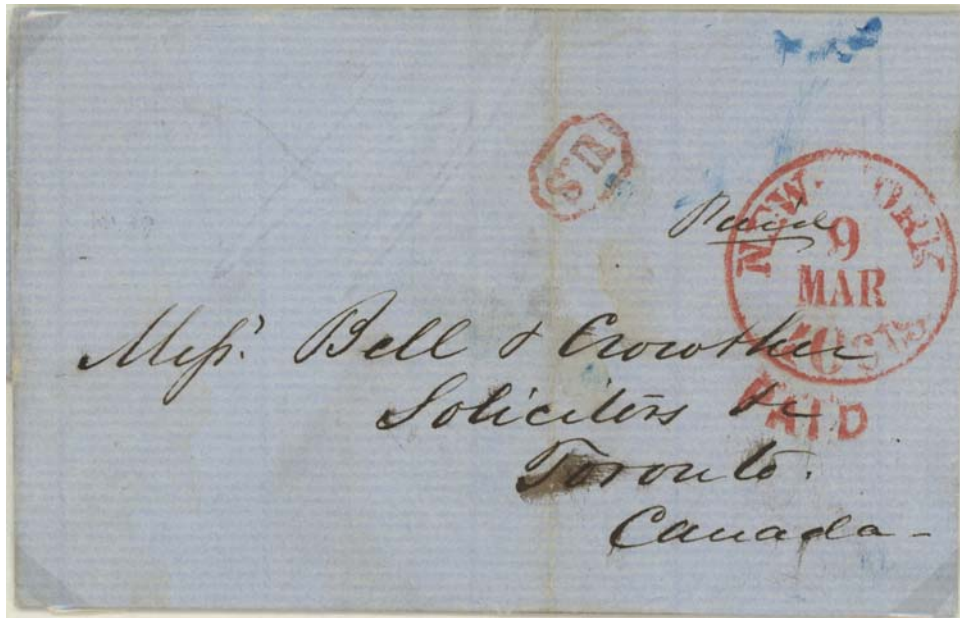 U.S
Paid
NEW-YORK
9
MAR
10 cts
PAID
Messrs. Bell & Crowther
Solicitors &c
Toronto.
Canada -